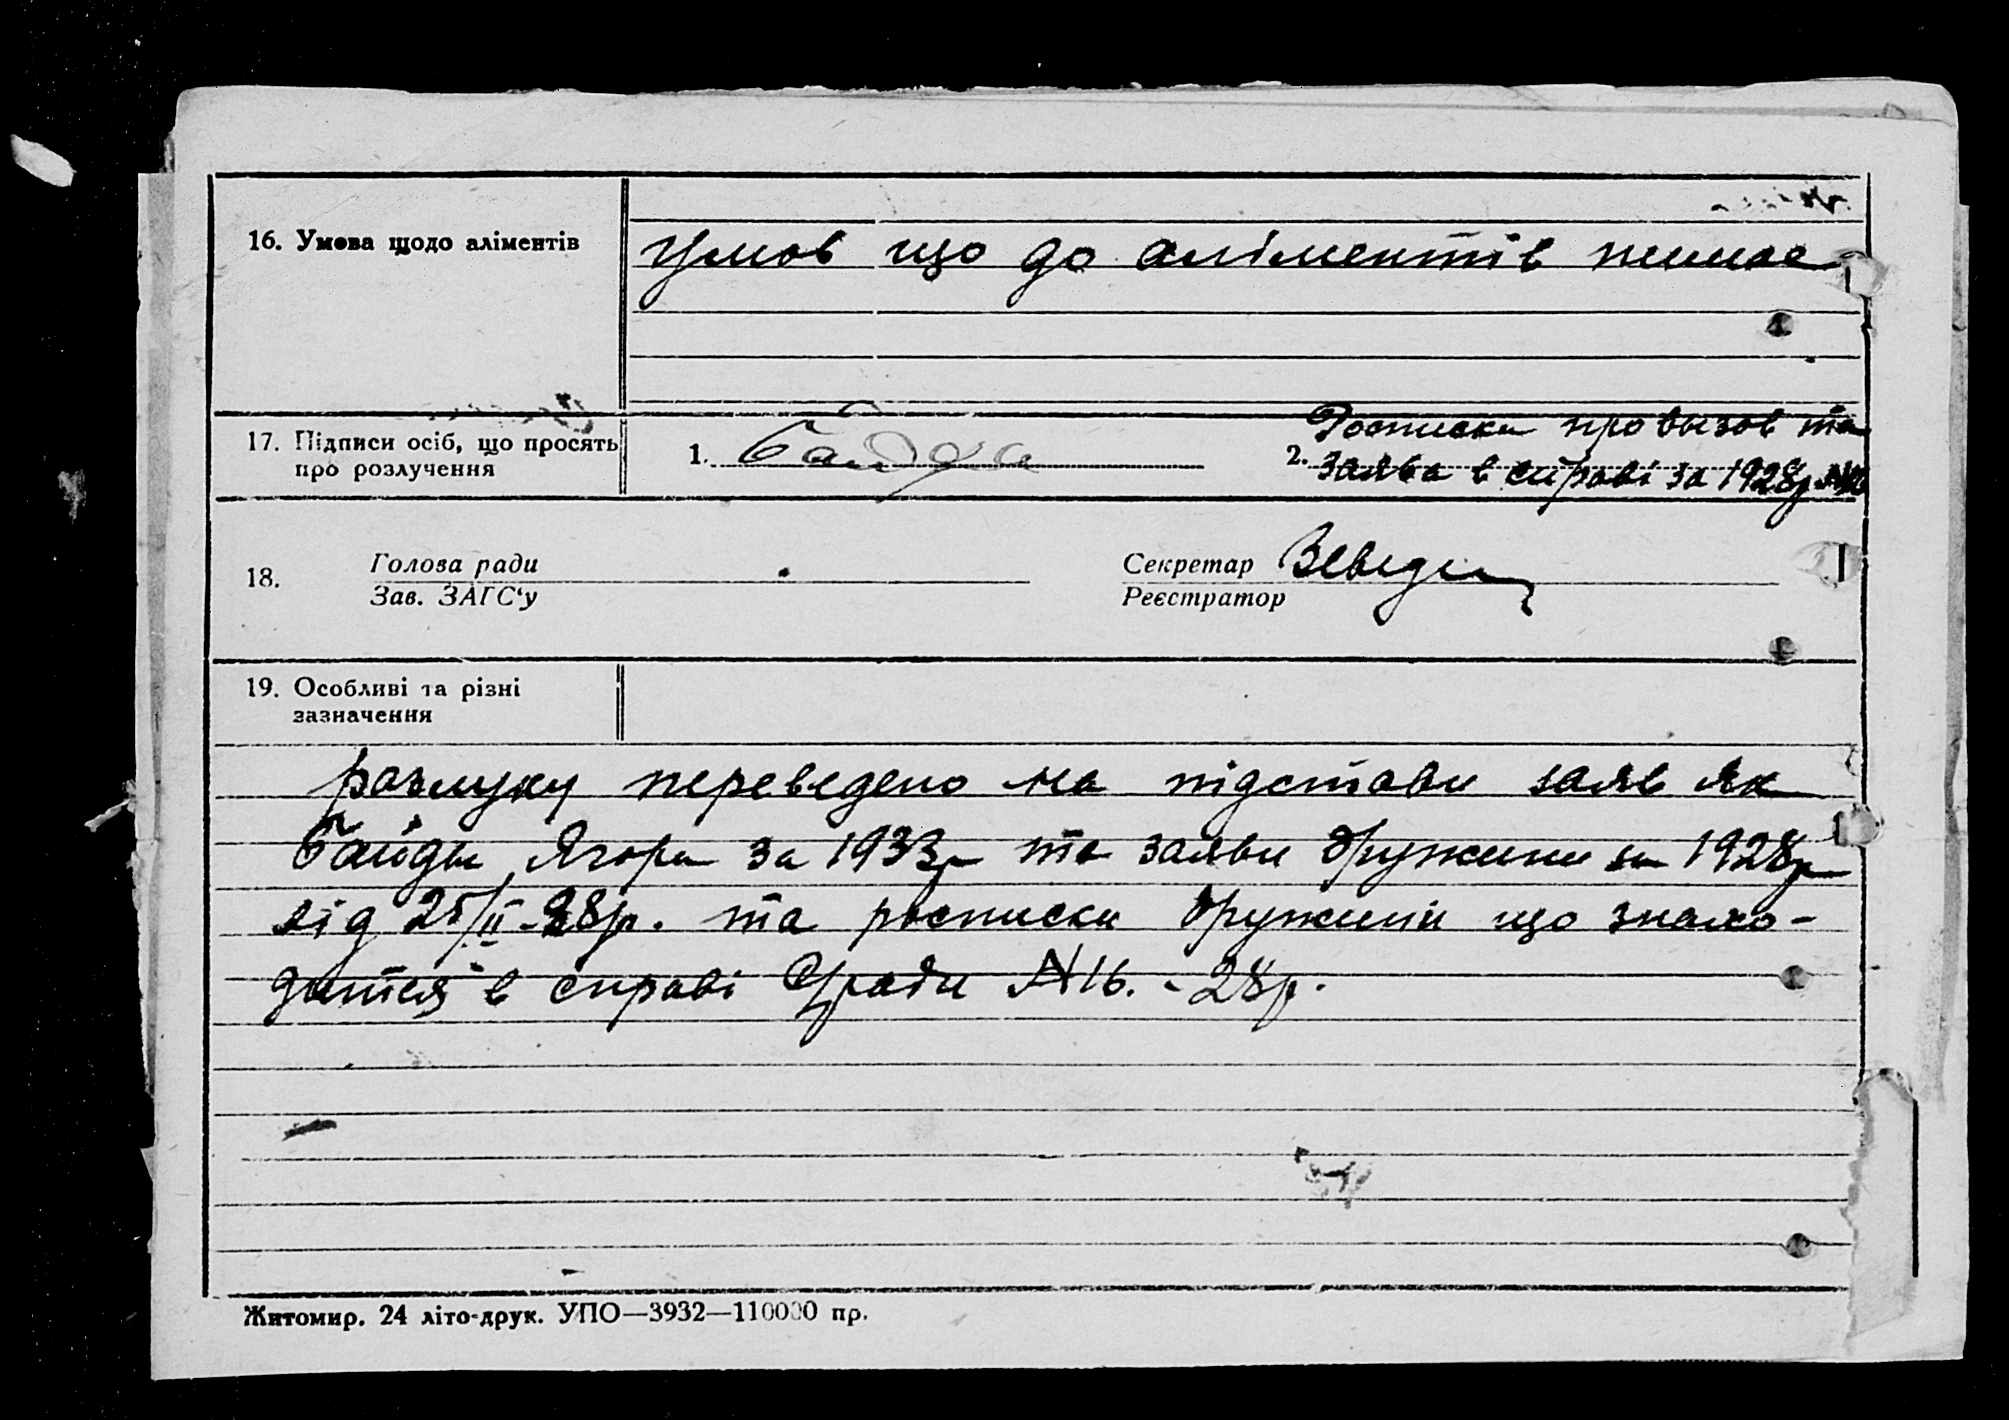 16. Умова щодо аліментів
Умов що до аліментів немае
17. Підписи осіб, що просять
про розлучення
1. Байда
2. Росписки про вызов та
заява в справі за 1928р. №16
18.
Голова ради
Зав. ЗАГС'у
Секретар
Реєстратор
19. Особливі та різні
зазначення
розлуку переведено на підстави заяв як
Байды Ягора за 1933р та заяви дружини за 1928р
від 25/II-28р. та росписки дружини що знахо-
дится в справі С/ради №16. - 28р.
Житомир. 24 літо-друк. УПО—3932—110000 пр.